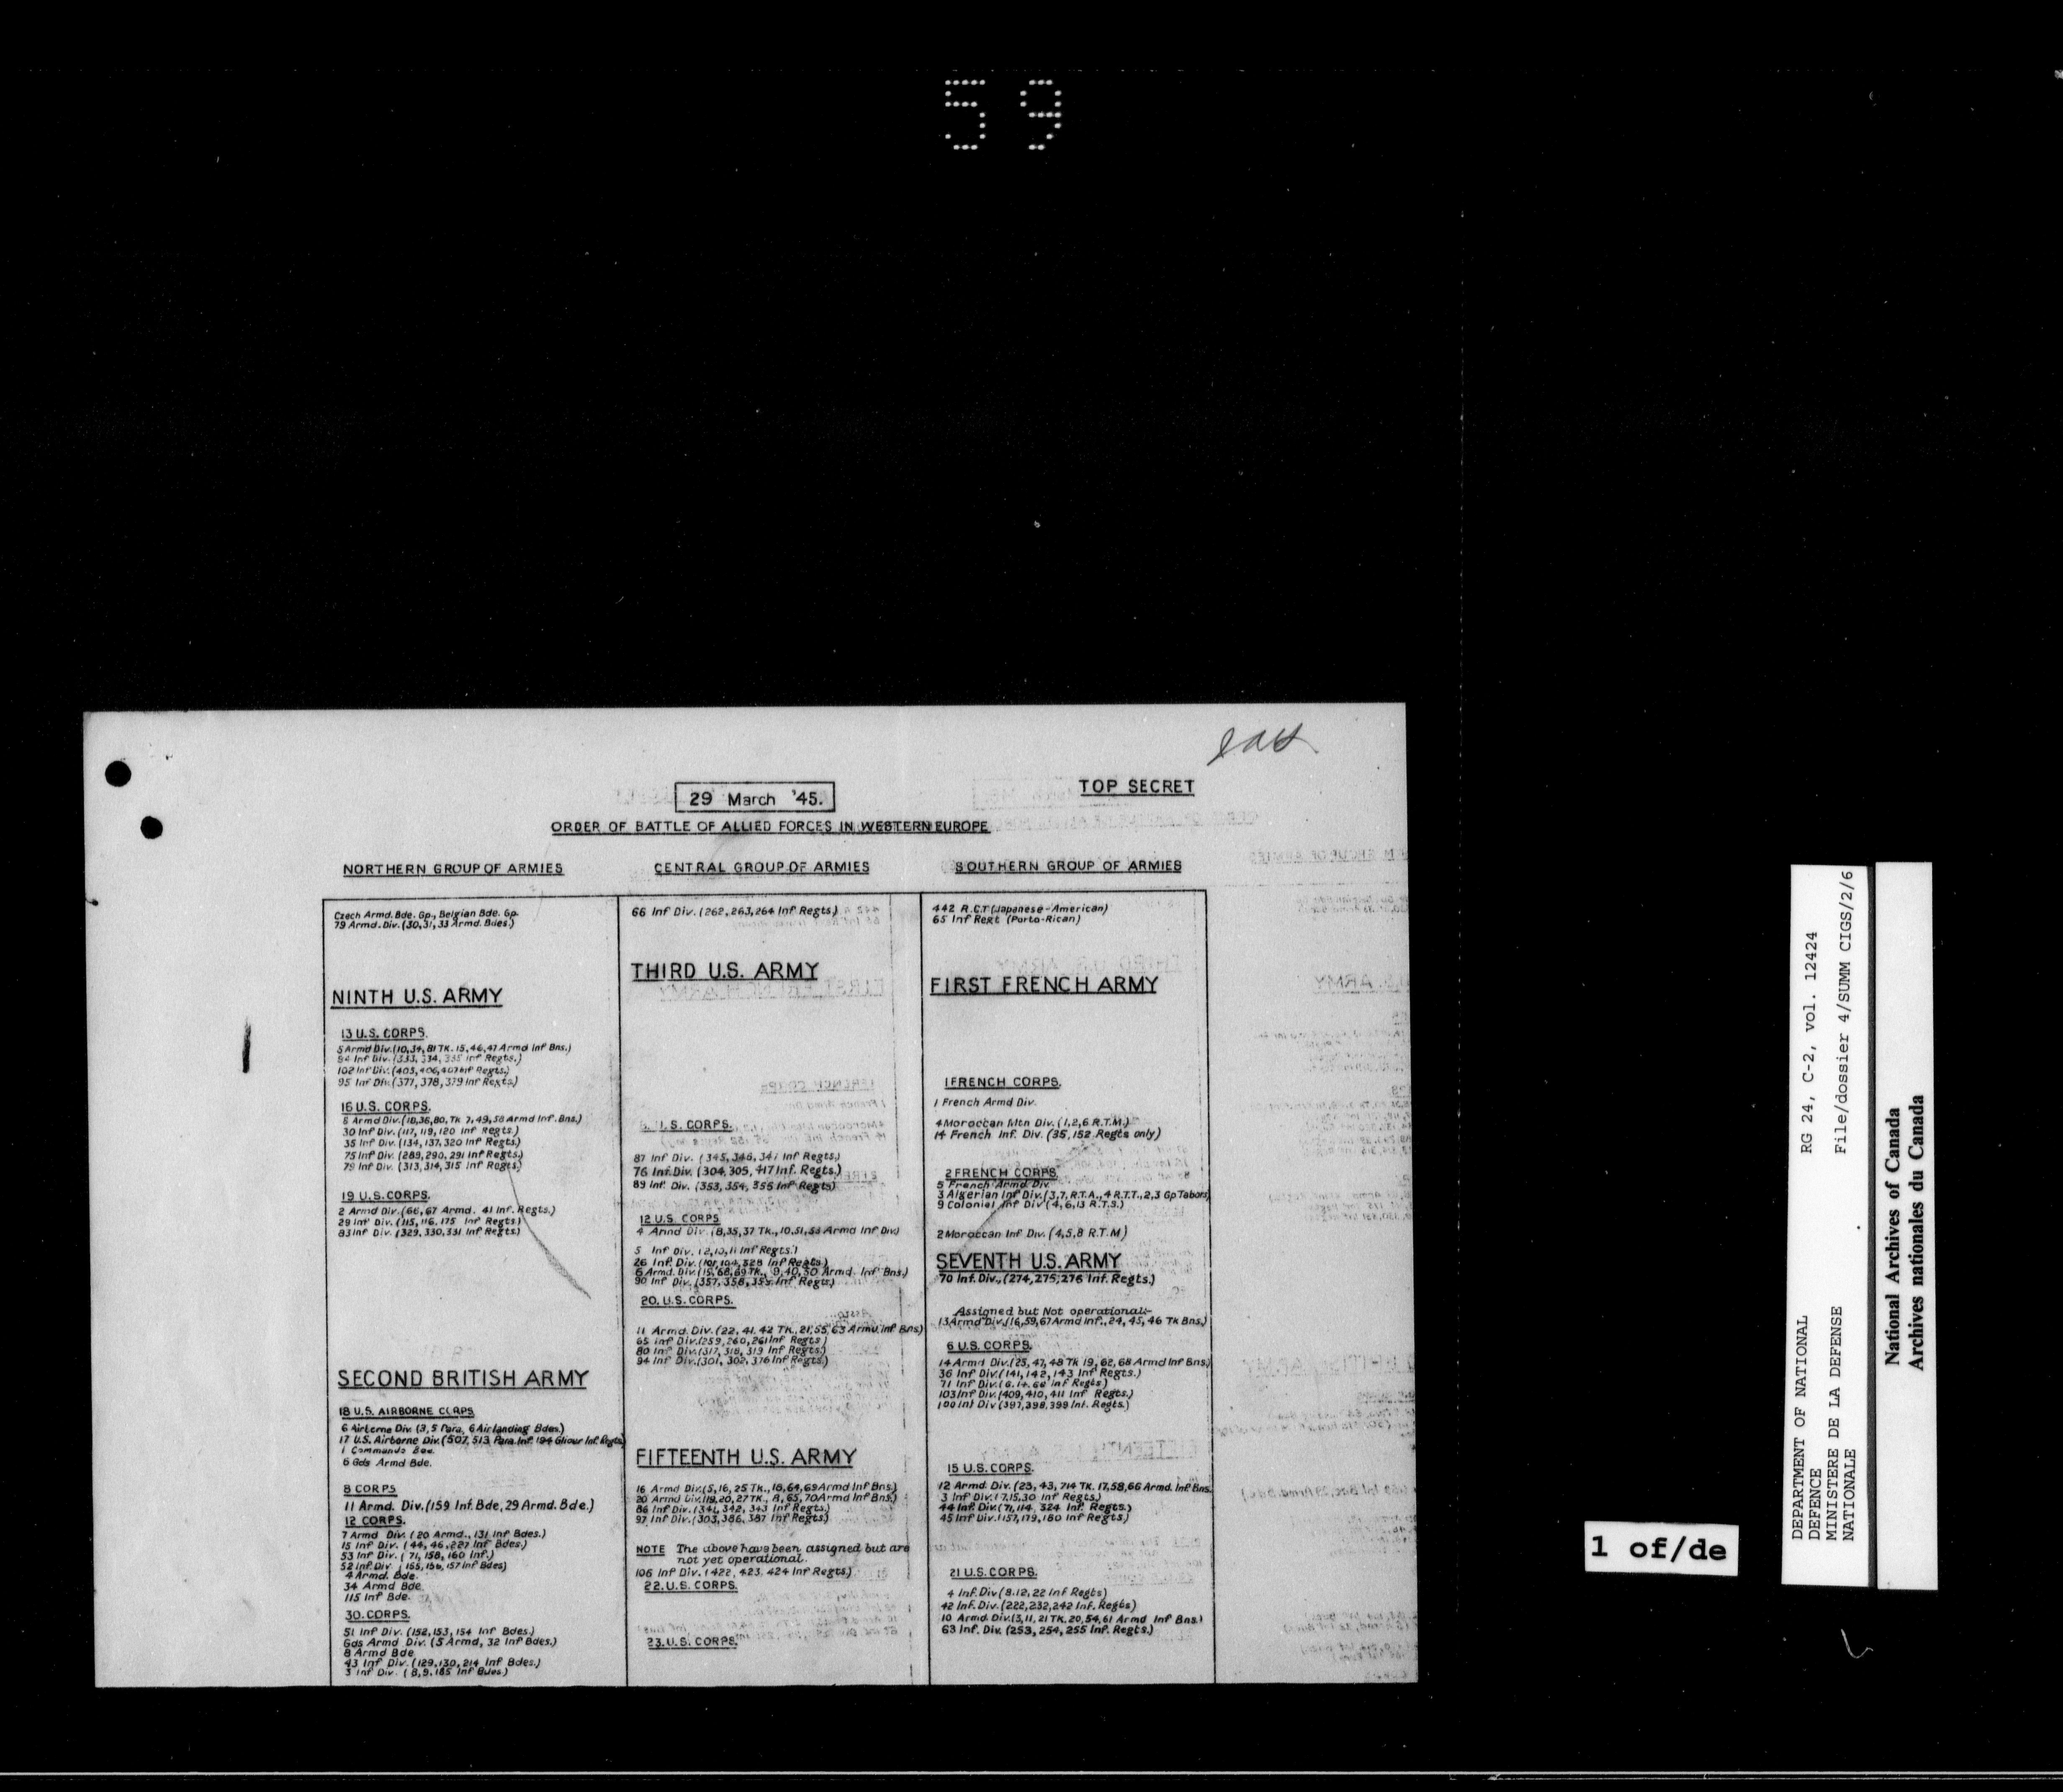 59
TOP SECRET
29 March '45.
ORDER OF BATTLE OF ALLIED FORCES IN WESTERN EUROPE
NORTHERN GROUP OF ARMIES
Czech Armd. Bde. Gp., Belgian Bde. Gp.
79 Armd. Div. (30,31,33 Armd. Bdes.)
NINTH U.S. ARMY
13 U.S. CORPS.
5 Armd Div. (10,34,81 TK. 15,46,47 Armd Inf Bns.)
84 Inf Div. (333, 334, 335 Inf Regts.)
102 Inf Div. (405,406,407 Inf Regts.)
95 Inf Div. (377, 378, 379 Inf Regts.)
16 U.S. CORPS.
8 Armd Div. (18,36,80, Tk 7,49,58 Armd Inf. Bns.)
30 Inf Div. (117, 119, 120 Inf Regts.)
35 Inf Div. (134, 137, 320 Inf Regts.)
75 Inf Div. (289, 290, 291 Inf Regts.)
79 Inf Div. (313, 314, 315 Inf Regts.)
19 U.S. CORPS.
2 Armd Div. (66, 67 Armd. 41 Inf. Regts.)
29 Inf Div. (115, 116, 175 Inf Regts.)
83 Inf Div. (329, 330, 331 Inf Regts.)
SECOND BRITISH ARMY
18 U.S. AIRBORNE CORPS
6 Airborne Div (3,5 Para, 6 Airlanding Bdes.)
17 U.S. Airborne Div. (507, 513 Para. Inf. 194 Glider Inf. Regts)
1 Commando Bde.
6 Gds Armd Bde.
8 CORPS
11 Armd. Div. (159 Inf. Bde, 29 Armd. Bde.)
12 CORPS.
7 Armd Div. (20 Armd., 131 Inf Bdes.)
15 Inf Div. (44, 46, 227 Inf Bdes.)
53 Inf Div. (71, 158, 160 Inf.)
52 Inf Div. (155, 156, 157 Inf Bdes)
4 Armd. Bde.
34 Armd Bde
115 Inf Bde.
30. CORPS.
51 Inf Div. (152, 153, 154 Inf Bdes.)
Gds Armd Div. (5 Armd, 32 Inf Bdes.)
8 Armd Bde
43 Inf Div. (129, 130, 214 Inf Bdes.)
3 Inf Div. (8, 9, 185 Inf Bdes)
CENTRAL GROUP OF ARMIES
66 Inf Div. (262, 263, 264 Inf Regts)
THIRD U.S. ARMY
U.S. CORPS.
87 Inf Div. (345, 346, 347 Inf Regts.)
76 Inf. Div. (304, 305, 417 Inf. Regts.)
89 Inf. Div. (353, 354, 355 Inf Regts)
12 U.S. CORPS
4 Armd Div (8,35,37 Tk., 10,51,53 Armd Inf Div)
5 Inf Div. (2,10,11 Inf Regts.)
26 Inf. Div. (101, 104, 328 Inf Regts)
6 Armd. Div. (15, 68, 69 TK., 9, 40, 50 Armd. Inf Bns.)
90 Inf Div. (357, 358, 359 Inf Regts)
20. U.S. CORPS.
11 Armd. Div. (22, 41, 42 TK., 21, 55, 63 Armd Inf Bns)
65 Inf Div. (259, 260, 261 Inf Regts)
80 Inf Div. (317, 318, 319 Inf Regts.)
94 Inf Div. (301, 302, 376 Inf Regts.)
FIFTEENTH U.S. ARMY
16 Armd Div. (5, 16, 25 TK., 18, 64, 69 Armd Inf Bns.)
20 Armd Div. (9, 20, 27 TK., 8, 65, 70 Armd Inf Bns.)
86 Inf Div. (341, 342, 343 Inf Regts.)
97 Inf Div. (303, 386, 387 Inf Regts)
NOTE The above have been assigned but are
not yet operational.
106 Inf Div. (422, 423, 424 Inf Regts)
22. U.S. CORPS.
23. U.S. CORPS.
SOUTHERN GROUP OF ARMIES
442 R.C.T (Japanese-American)
65 Inf Regt (Porto-Rican)
FIRST FRENCH ARMY
1 FRENCH CORPS.
1 French Armd Div.
4 Moroccan Mtn Div. (1,2,6 R.T.M.)
14 French Inf. Div. (35, 152 Regts only)
2 FRENCH CORPS
5 French Armd Div
3 Algerian Inf Div. (3,7, R.T.A., 4 R.T.T., 2,3 Gp Tabors)
9 Colonial Inf Div (4, 6, 13 R.T.S.)
2 Moroccan Inf Div. (4,5,8 R.T.M)
SEVENTH U.S. ARMY
70 Inf. Div., (274, 275, 276 Inf. Regts.)
Assigned but Not operational:-
13 Armd Div. (16, 59, 67 Armd Inf., 24, 45, 46 Tk Bns.)
6 U.S. CORPS.
14 Armd Div. (25, 47, 48 Tk 19, 62, 68 Armd Inf Bns.)
36 Inf Div. (141, 142, 143 Inf Regts.)
71 Inf Div. (5, 14, 66 Inf Regts)
103 Inf Div. (409, 410, 411 Inf Regts.)
100 Inf Div (397, 398, 399 Inf. Regts.)
15 U.S. CORPS.
12 Armd. Div. (23, 43, 714 TK. 17, 58, 66 Armd. Inf Bns.
3 Inf Div. (7, 15, 30 Inf Regts.)
44 Inf. Div. (71, 114, 324 Inf. Regts.)
45 Inf Div. (157, 179, 180 Inf Regts)
21 U.S. CORPS.
4 Inf. Div (8, 12, 22 Inf Regts)
42 Inf. Div. (222, 232, 242 Inf. Regts)
10 Armd. Div. (3, 11, 21 TK. 20, 54, 61 Armd Inf Bns.)
63 Inf. Div. (253, 254, 255 Inf. Regts.)
1 of/de
DEPARTMENT OF NATIONAL
DEFENCE
MINISTERE DE LA DEFENSE
NATIONALE
RG 24, C-2, vol. 12424
File/dossier 4/SUMM CIGS/2/6
National Archives of Canada
Archives nationales du Canada